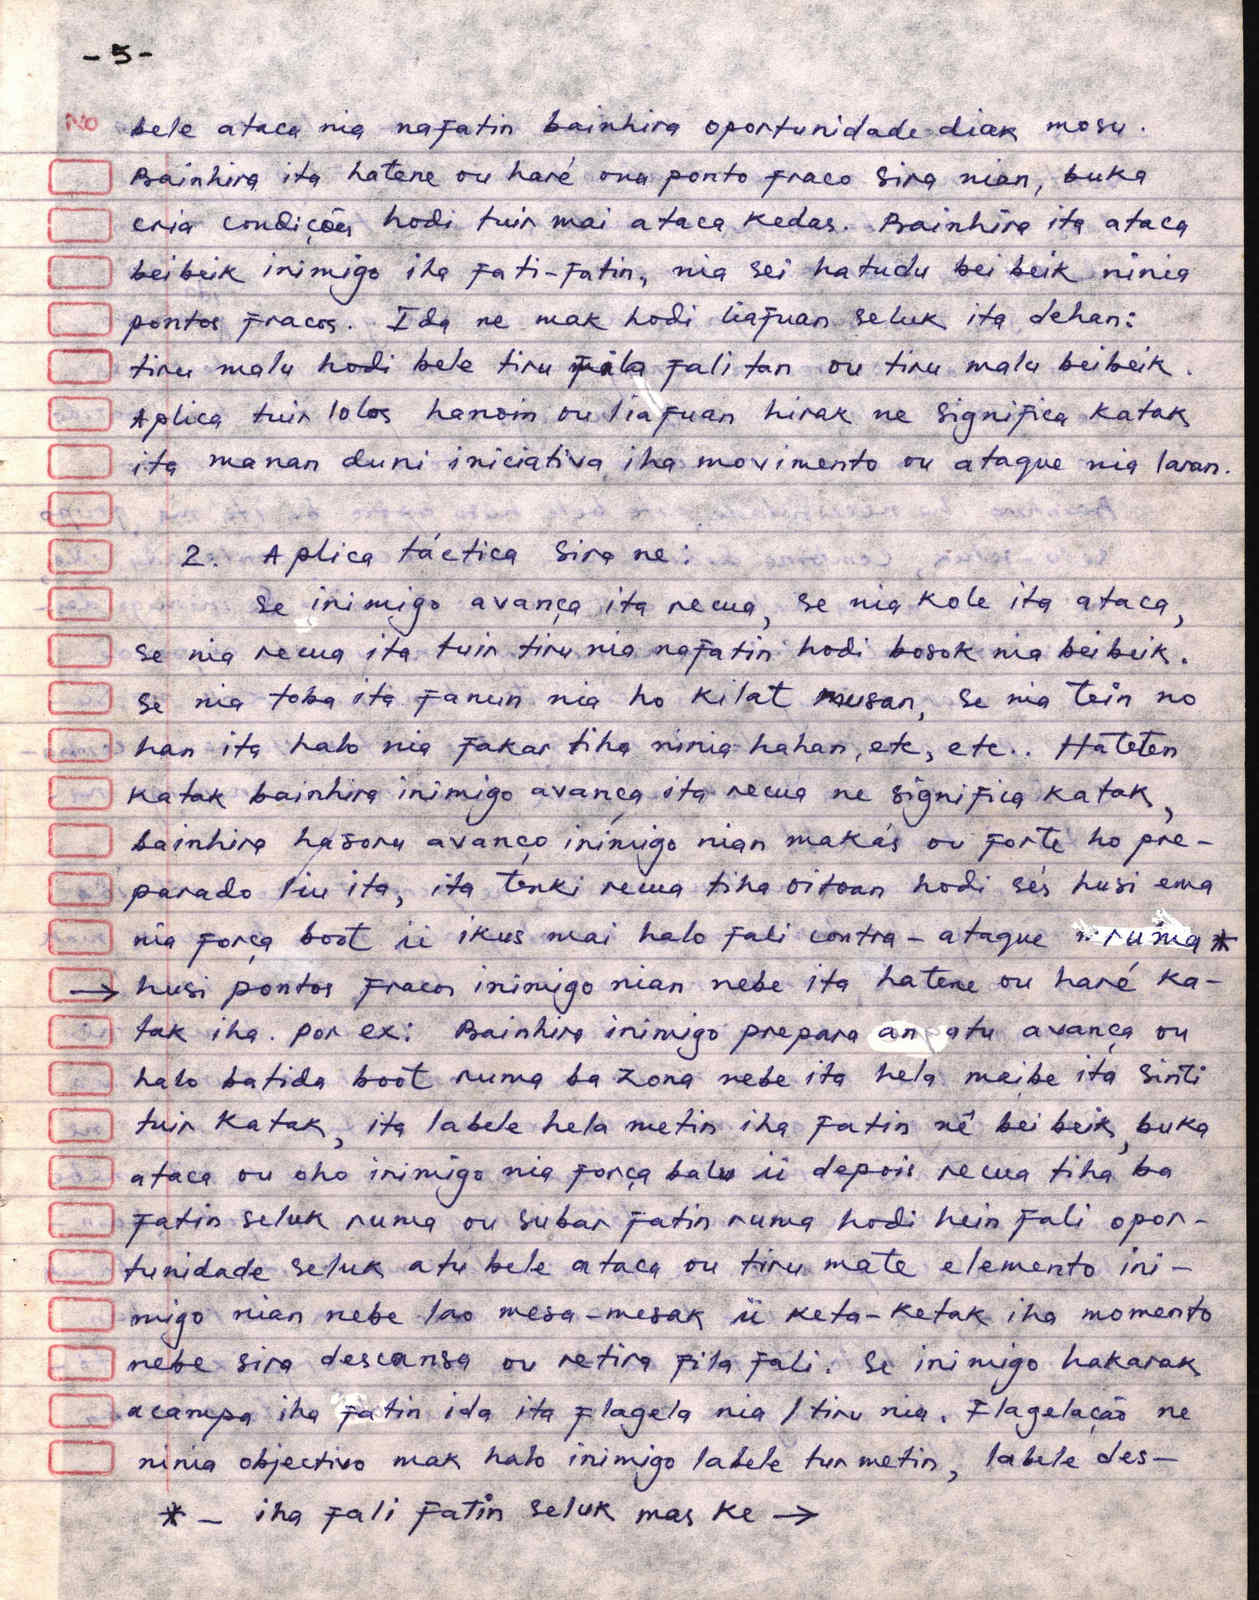 - 5 -
NO bele ataca nia nafatin bainhira oportunidade diak mosu.
Bainhira ita hatene ou haré ona ponto fraco sira nian, buka
cria condições hodi tuir mai ataca kedas. Bainhira ita ataca
beibeik inimigo iha fati-fatin, nia sei hatudu bei beik ninia
pontos fracos. Ida ne mak hodi liafuan seluk ita dehan:
tiru malu hodi bele tiru fila fali tan ou tiru malu beibeik.
Aplica tuir lolos hanoin ou liafuan hirak ne significa katak
ita manan duni iniciativa iha movimento ou ataque nia laran.
2. Aplica táctica sira ne:
Se inimigo avança ita recua, se nia kole ita ataca,
se nia recua ita tuir tiru nia nafatin hodi bosok nia beibeik.
Se nia toba ita fanun nia ho kilat musan, se nia tein no
han ita halo nia fakar tiha ninia hahan, etc, etc.. Hateten
katak bainhira inimigo avança ita recua ne significa katak,
bainhira hasoru avanço inimigo nian makás ou forte ho pre-
parado liu ita, ita tenki recua tiha oitoan hodi sés husi ema
nia força boot ii ikus mai halo fali contra-ataque ruma *
→ husi pontos fracos inimigo nian nebe ita hatene ou haré ka-
tak iha. Por ex: Bainhira inimigo prepara an atu avança ou
halo batida boot ruma ba zona nebe ita hela maibe ita sinti
tuir katak, ita labele hela metin iha fatin nê bei beik, buka
ataca ou oho inimigo nia força balu ii depois recua tiha ba
fatin seluk ruma ou subar fatin ruma hodi hein fali opor-
tunidade seluk atu bele ataca ou tiru mate elemento ini-
migo nian nebe lao mesa-mesak ii keta-ketak iha momento
nebe sira descansa ou retira fila fali. Se inimigo hakarak
acampa iha fatin ida ita flagela nia / tiru nia. Flagelação ne
ninia objectivo mak halo inimigo labele tur metin, labele des-
* - iha fali fatin seluk mas ke →